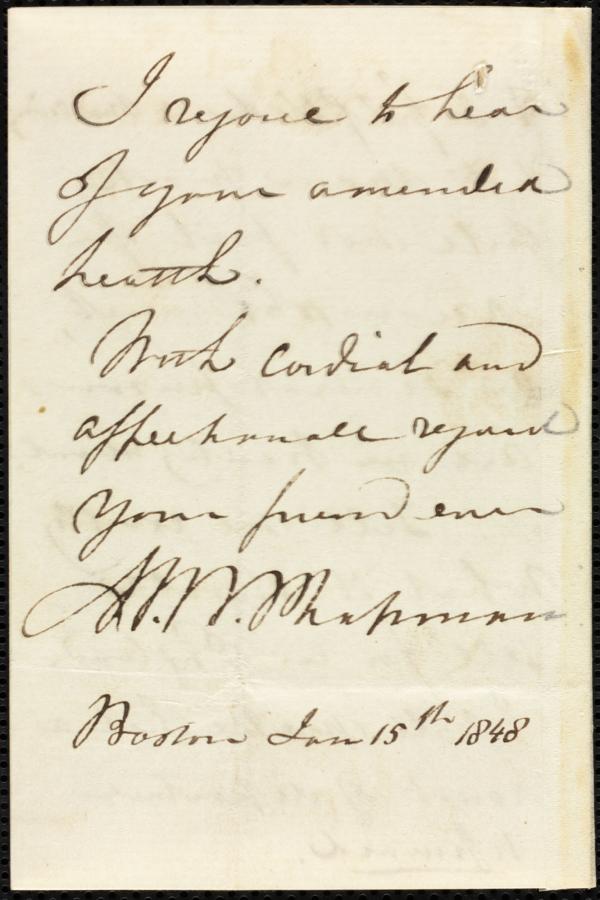 I rejoice to hear
of your amended
health.
With cordial and
affectionate regard
Your friend ever
M. W. Chapman
Boston Jan 15th 1848